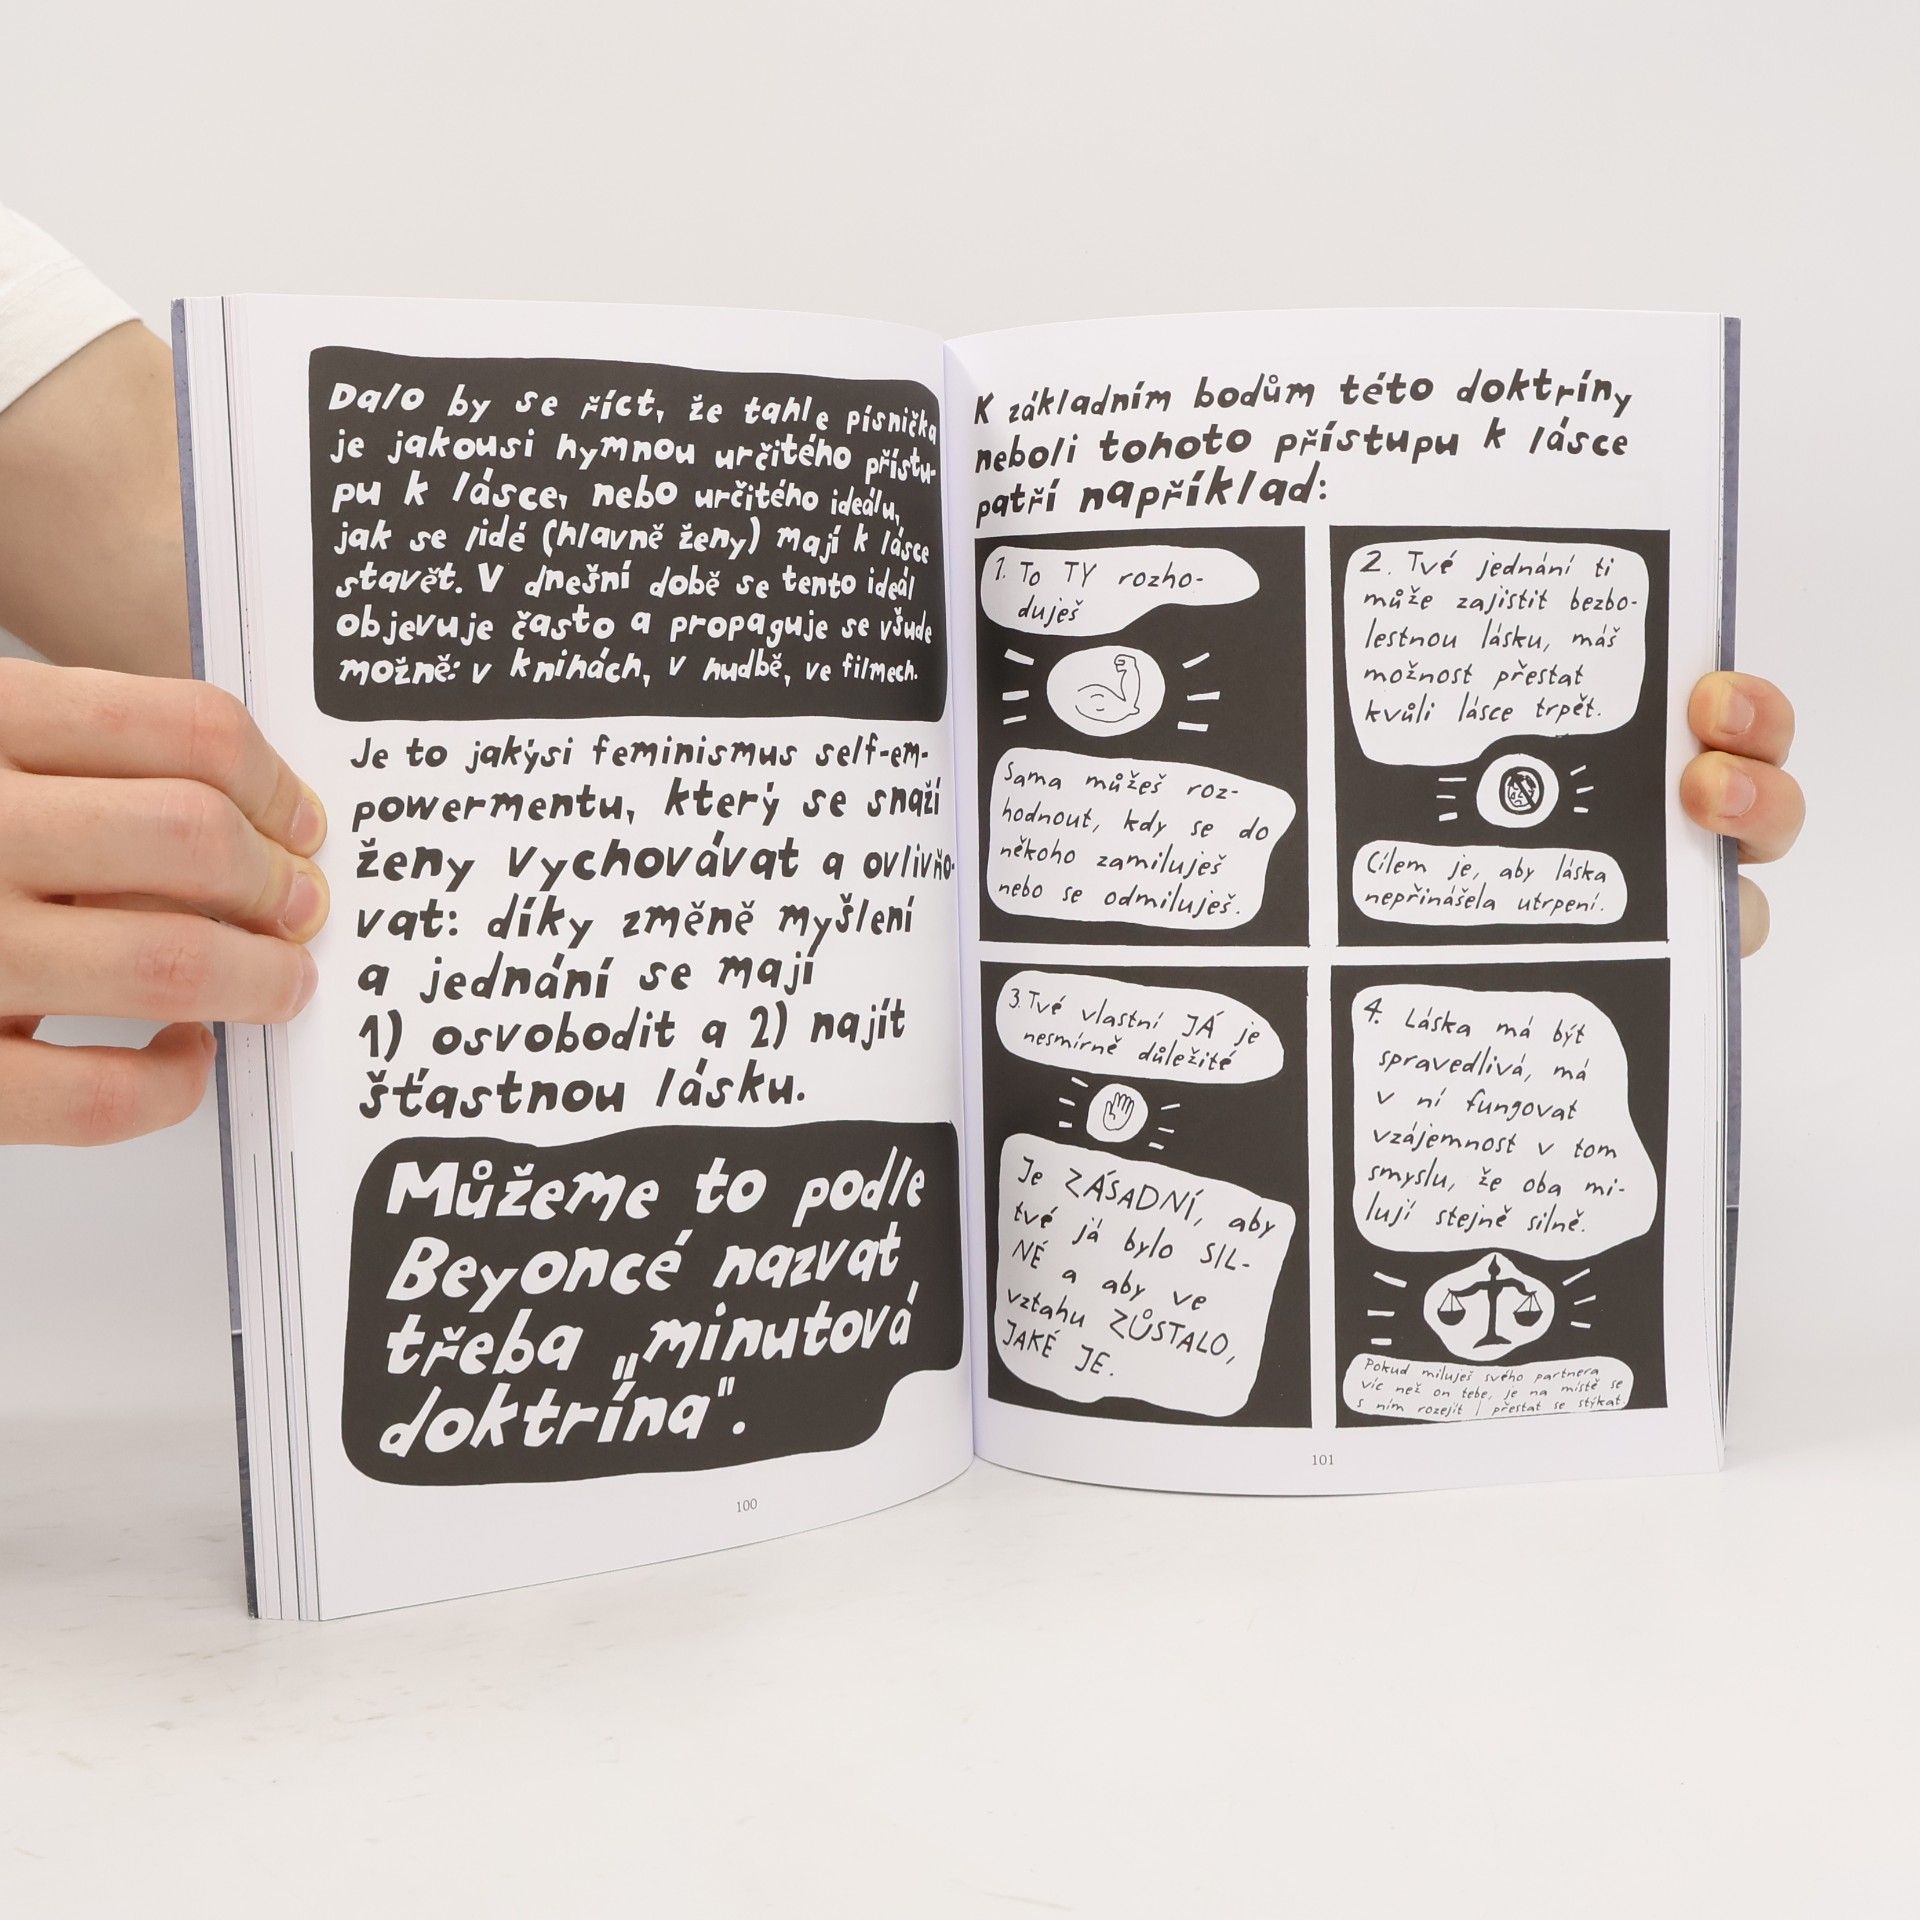 Dalo by se říct, že tahle písnička
je jakousi hymnou určitého přístu-
pu k lásce, nebo určitého ideálu,
jak se lidé (hlavně ženy) mají k lásce
stavět. V dnešní době se tento ideál
objevuje často a propaguje se všude
možně: v knihách, v hudbě, ve filmech.
Je to jakýsi feminismus self-em-
powermentu, který se snaží
ženy vychovávat a ovlivňo-
vat: díky změně myšlení
a jednání se mají
1) osvobodit a 2) najít
šťastnou lásku.
Můžeme to podle
Beyoncé nazvat
třeba „minutová
doktrína".
100
K základním bodům této doktríny
neboli tohoto přístupu k lásce
patří například:
1. To TY rozho-
duješ
Sama můžeš roz-
hodnout, kdy se do
někoho zamiluješ
nebo se odmiluješ.
2. Tvé jednání ti
může zajistit bezbo-
lestnou lásku, máš
možnost přestat
kvůli lásce trpět.
Cílem je, aby láska
nepřinášela utrpení.
3. Tvé vlastní JÁ je
nesmírně důležité
Je ZÁSADNÍ, aby
tvé já bylo SIL-
NÉ a aby ve
vztahu ZŮSTALO,
JAKÉ JE.
4. Láska má být
spravedlivá, má
v ní fungovat
vzájemnost v tom
smyslu, že oba mi-
lují stejně silně.
Pokud miluješ svého partnera
víc než on tebe, je na místě se
s ním rozejít / přestat se stýkat.
101